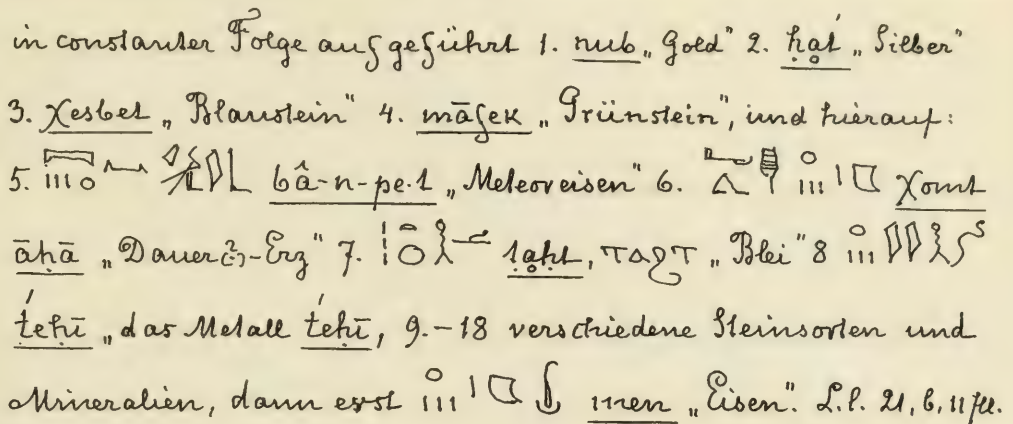 in constanter Folge aufgeführt 1. nub „Gold" 2. ḥat́ „Silber"
3. χesbet „Blaustein" 4. māfek „Grünstein", und hierauf:
5. bâ-n-pe.t „Meteoreisen" 6. χomt
āḥā „Dauer(?)-Erz" 7. taḥt, ⲧⲁϩⲧ „Blei" 8
t́eḥī „das Metall t́eḥī, 9.–18 verschiedene Steinsorten und
Mineralien, dann erst men „Eisen". L.l. 21, b, 11 fll.